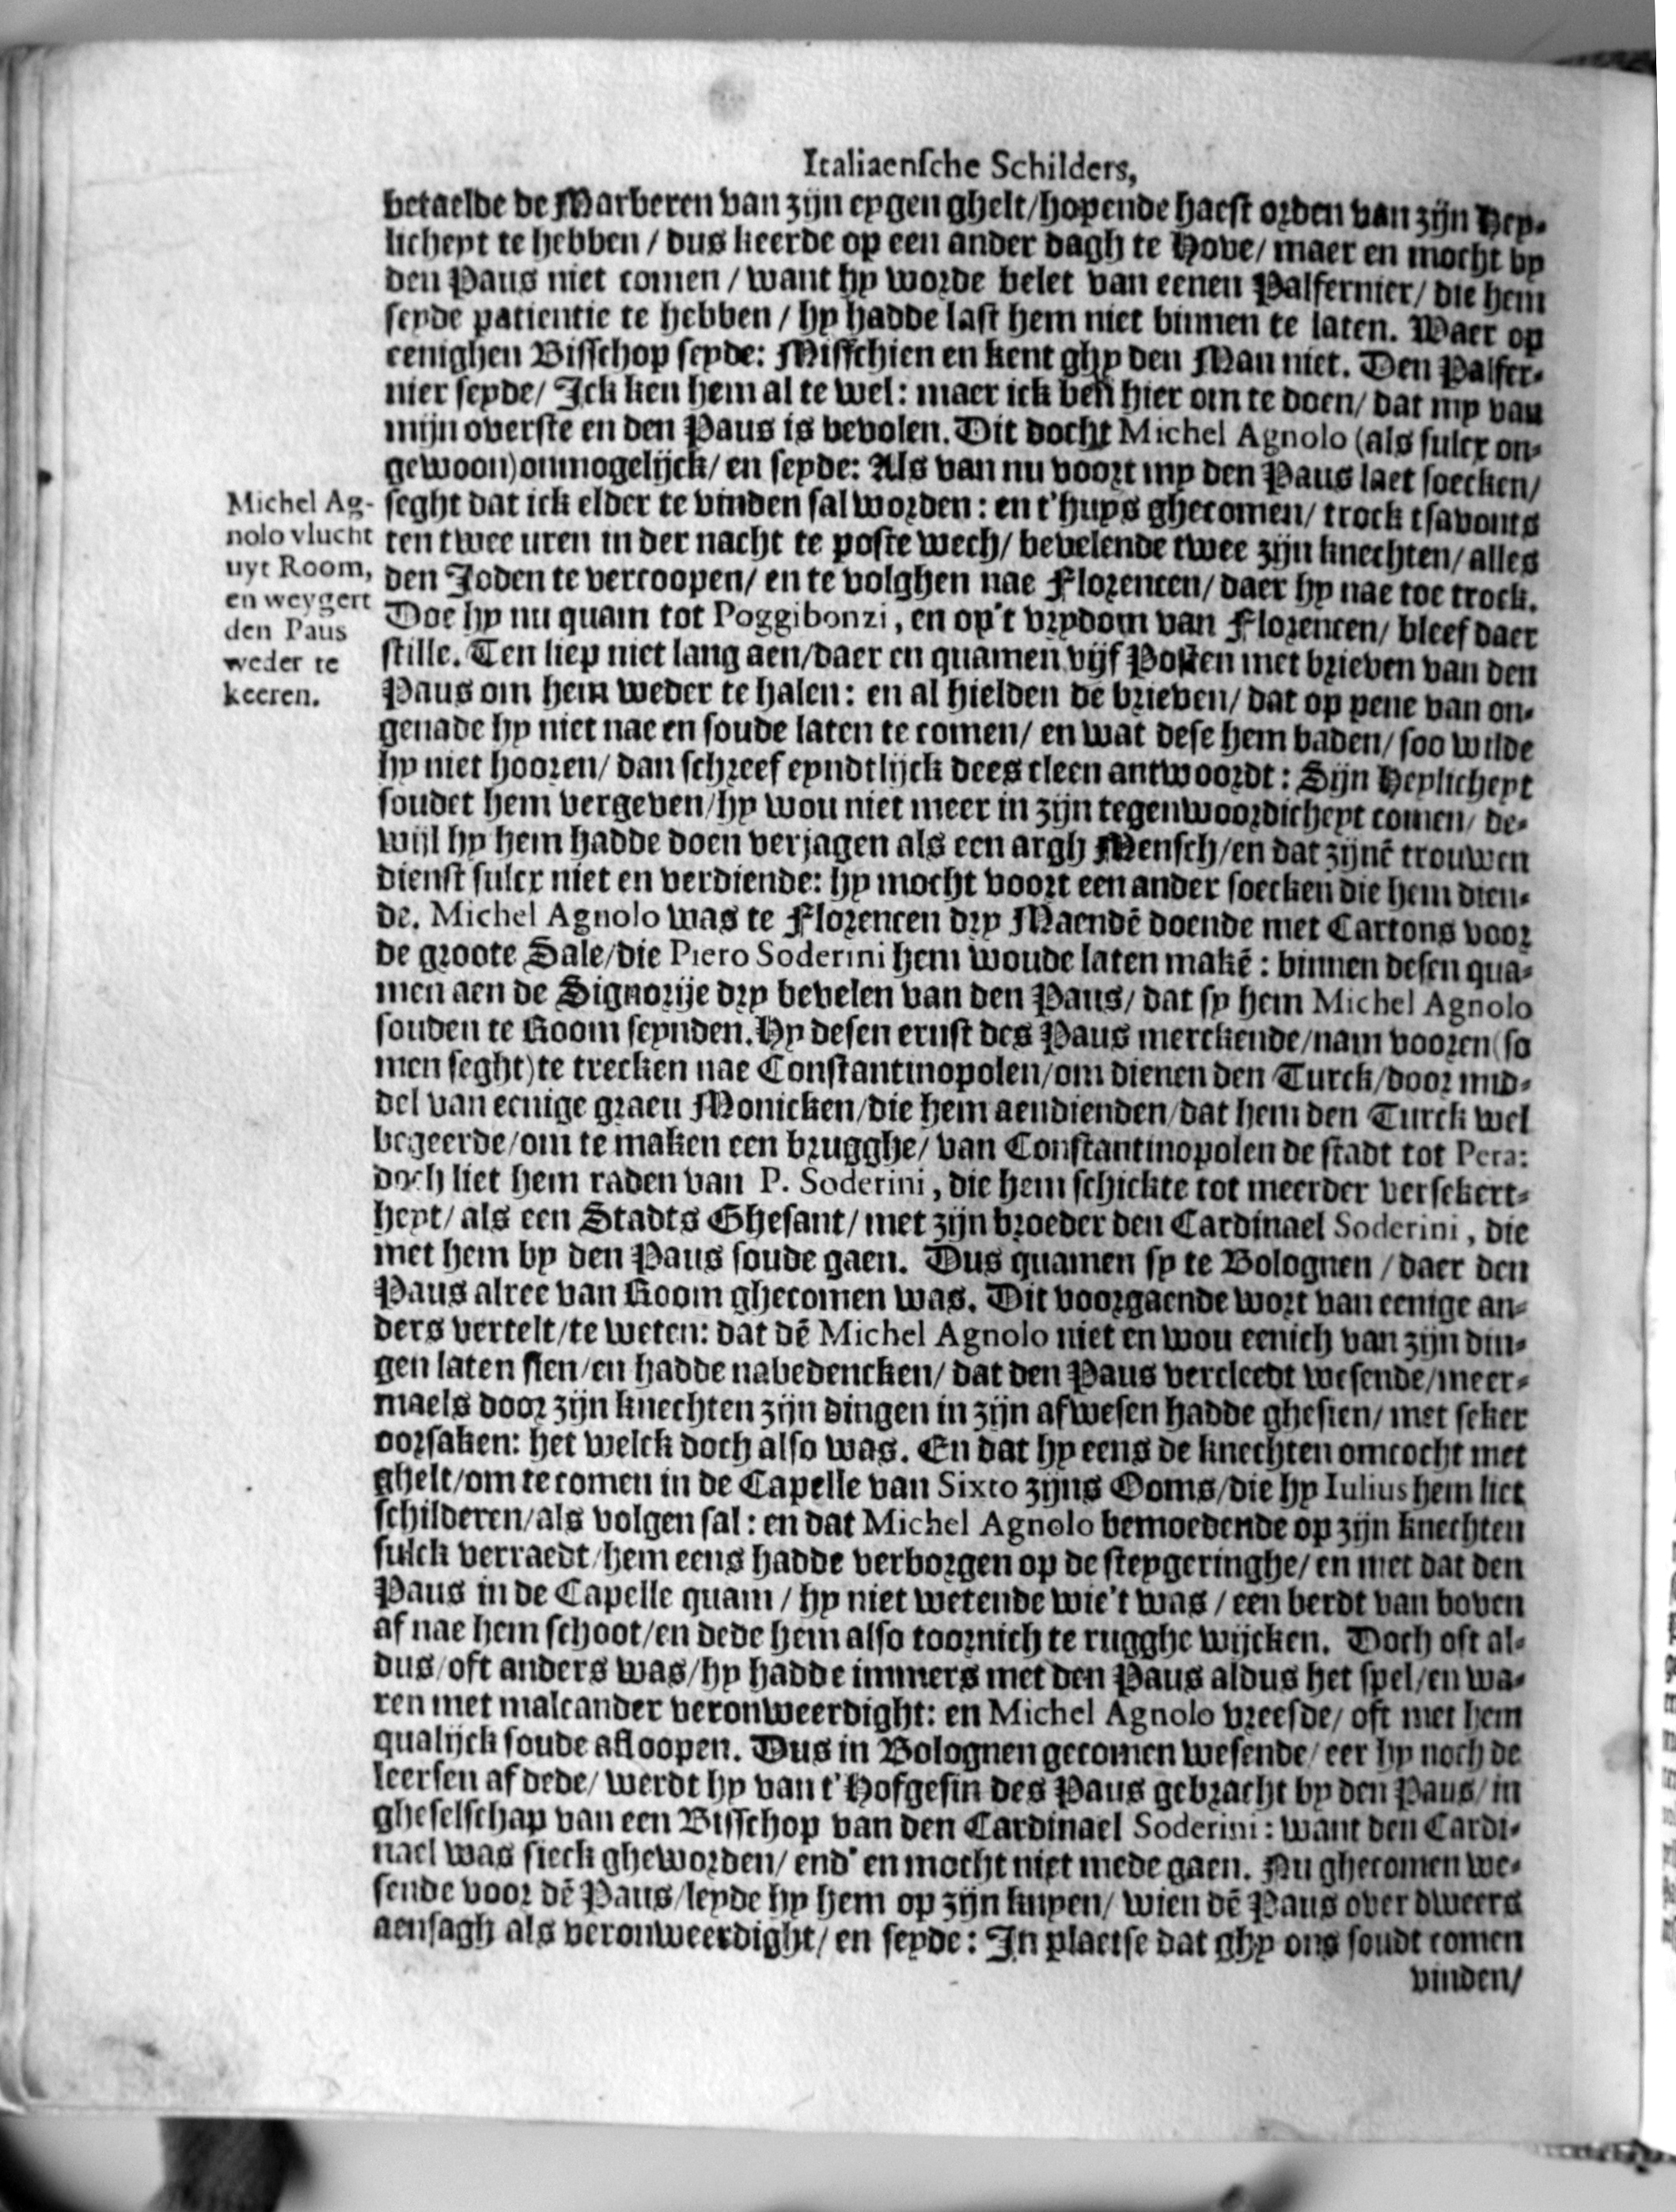 Italiaensche Schilders,
betaelde de Marberen van zijn eygen ghelt/hopende haest orden van zijn Hey-
licheyt te hebben / dus keerde op een ander dagh te Hove/ maer en mocht by
den Paus niet comen / want hy worde belet van eenen Palfernier/ die hem
seyde patientie te hebben / hy hadde last hem niet binnen te laten. Waer op
eenighen Bisschop seyde: Misschien en kent ghy den Man niet. Den Palfer-
nier seyde/ Ick ken hem al te wel: maer ick ben hier om te doen/ dat my van
mijn overste en den Paus is bevolen. Dit docht Michel Agnolo (als sulcx on-
gewoon) onmogelijck/ en seyde: Als van nu voort my den Paus laet soecken/
seght dat ick elder te vinden sal worden: en t'huys ghecomen/ trock tsavonts
ten twee uren in der nacht te poste wech/ bevelende twee zijn knechten/ alles
den Joden te vercoopen/ en te volghen nae Florencen/ daer hy nae toe trock.
Doe hy nu quam tot Poggibonzi, en op't vrydom van Florencen/ bleef daer
stille. Ten liep niet lang aen/daer en quamen vijf Posten met brieven van den
Paus om hem weder te halen: en al hielden de brieven/ dat op pene van on-
genade hy niet nae en soude laten te comen/ en wat dese hem baden/ soo wilde
hy niet hooren/ dan schreef eyndtlijck dees cleen antwoordt: Sijn Heylicheyt
soudet hem vergeven/hy wou niet meer in zijn tegenwoordicheyt comen/ de-
wijl hy hem hadde doen verjagen als een argh Mensch/en dat zijnē trouwen
dienst sulcx niet en verdiende: hy mocht voort een ander soecken die hem dien-
de. Michel Agnolo was te Florencen dry Maendē doende met Cartons voor
de groote Sale/die Piero Soderini hem woude laten makē: binnen desen qua-
men aen de Signorije dry bevelen van den Paus/ dat sy hem Michel Agnolo
souden te Room seynden. Hy desen ernst des Paus merckende/nam vooren (so
men seght) te trecken nae Constantinopolen/om dienen den Turck/door mid-
del van eenige graeu Monicken/die hem aendienden/dat hem den Turck wel
begeerde/om te maken een brugghe/ van Constantinopolen de stadt tot Pera:
doch liet hem raden van P. Soderini, die hem schickte tot meerder versekert-
heyt/ als een Stadts Ghesant/ met zijn broeder den Cardinael Soderini, die
met hem by den Paus soude gaen. Dus quamen sy te Bolognen / daer den
Paus alree van Room ghecomen was. Dit voorgaende wort van eenige an-
ders vertelt/te weten: dat dē Michel Agnolo niet en wou eenich van zijn din-
gen laten sien/en hadde nabedencken/ dat den Paus vercleedt wesende/meer-
maels door zijn knechten zijn dingen in zijn afwesen hadde ghesien/ met seker
oorsaken: het welck doch also was. En dat hy eens de knechten omcocht met
ghelt/om te comen in de Capelle van Sixto zijns Ooms/die hy Iulius hem liet
schilderen/als volgen sal: en dat Michel Agnolo bemoedende op zijn knechten
sulck verraedt/hem eens hadde verborgen op de steygeringhe/ en met dat den
Paus in de Capelle quam / hy niet wetende wie't was / een berdt van boven
af nae hem schoot/en dede hem also toornich te rugghe wijcken. Doch oft al-
dus/oft anders was/hy hadde immers met den Paus aldus het spel/en wa-
ren met malcander veronweerdight: en Michel Agnolo vreesde/ oft met hem
qualijck soude afloopen. Dus in Bolognen gecomen wesende/ eer hy noch de
leersen af dede/ werdt hy van t'Hofgesin des Paus gebracht by den Paus/ in
gheselschap van een Bisschop van den Cardinael Soderini: want den Cardi-
nael was sieck gheworden/ end' en mocht niet mede gaen. Nu ghecomen we-
sende voor dē Paus/leyde hy hem op zijn knyen/ wien dē Paus over dweers
aensagh als veronweerdight/ en seyde: In plaetse dat ghy ons soudt comen
vinden/
Michel Ag-
nolo vlucht
uyt Room,
en weygert
den Paus
weder te
keeren.